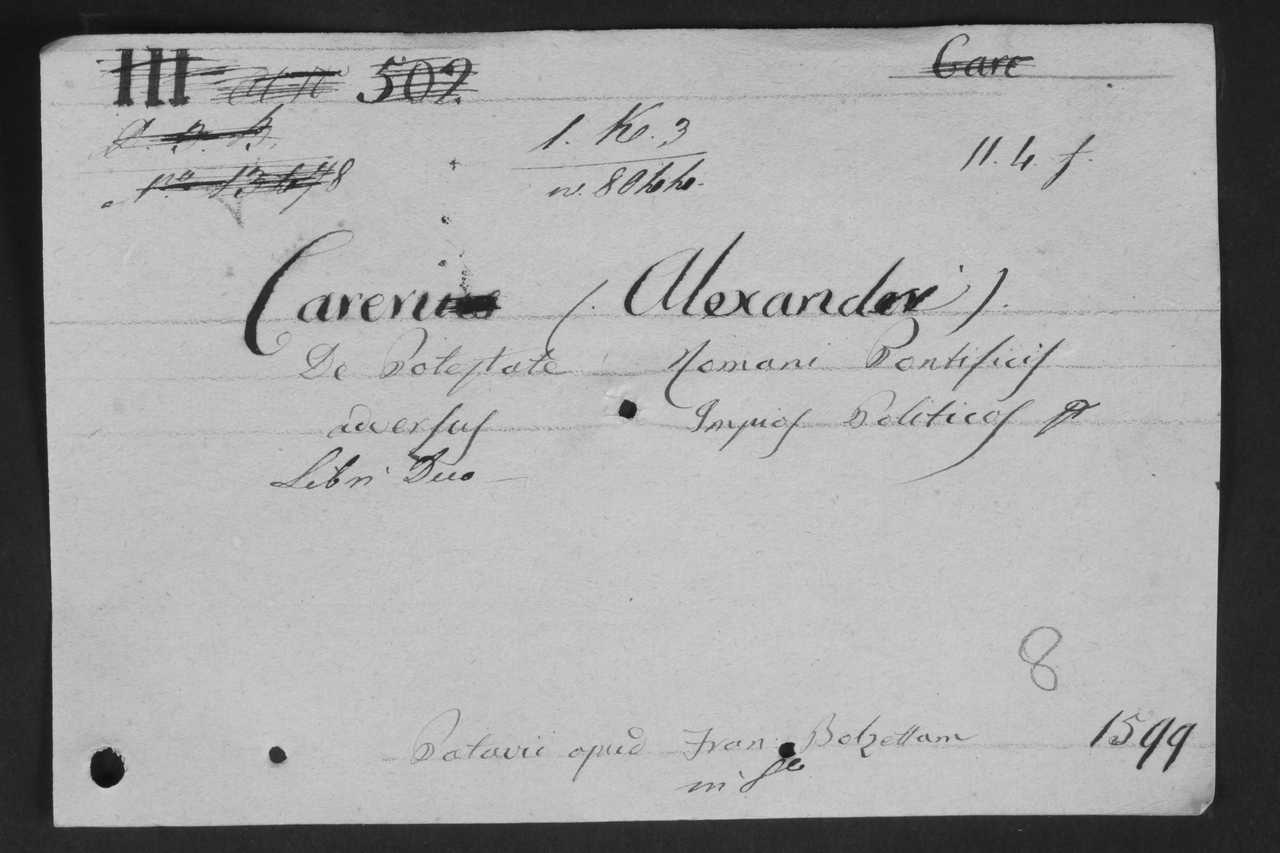 III 502 Care
1. K. 3 11. 4. f.
n. 80
Carerius (Alexander).
De Poteſtate Romani Pontificiſ
adverſuſ Impioſ Politicoſ
Libri Duo
8
Patavii apud Fran. Bolzettam 1599
in 8o